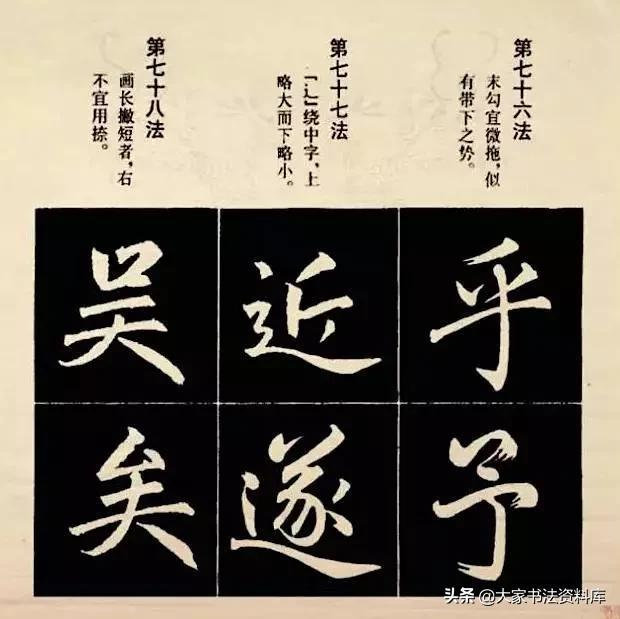 第七十六法
末勾宜微拖，似
有带下之势。
第七十七法
「辶」绕中字，上
略大而下略小。
第七十八法
画长撇短者，右
不宜用捺。
乎
予
近
遂
吴
矣
头条 @大家书法资料库